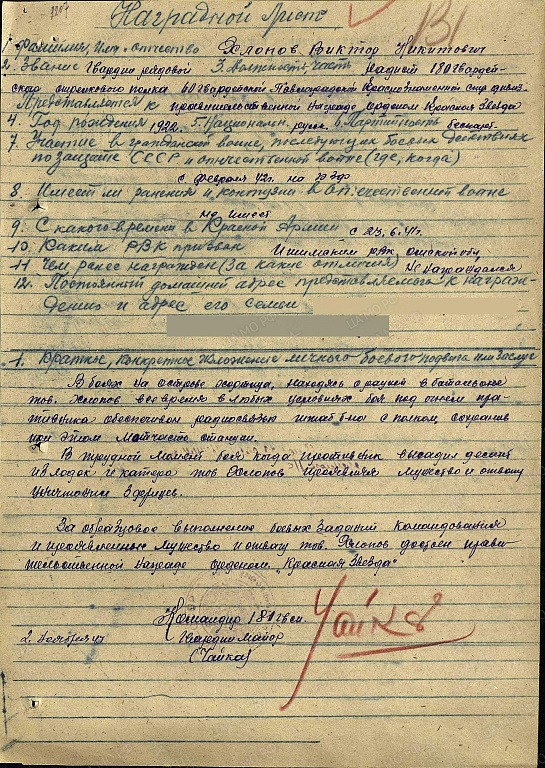 Наградной Лист
1. Фамилия, имя и отчество Хлопов Виктор Никитович
2. Звание Гвардии рядовой 3. Должность, часть радист 180 гвардей-
ского стрелкового полка 60 Гвардейской Павлоградской Краснознаменной стр дивиз.
Представляется к правительственной Награде орденом Красная Звезда
4. Год рождения 1922. 5. Национальн. русск. 6. Партийность беспарт.
7. Участие в гражданской войне, последующих боевых действиях
по защите СССР и отечественной войне (где, когда)
с февраля 42 г. на
8. Имеет ли ранения и контузии в Отечественной войне
не имеет
9. С какого времени в Красной Армии с 23.6.41г.
10. Каким РВК призван Ишимским рвк омской обл
11. Чем ранее награжден (за какие отличия) Не награждался
12. Постоянный домашний адрес представляемого к награж-
дению и адрес его семьи
1. Краткое, конкретное изложение личного боевого подвига или заслуг
В боях на острове Хортица, находясь с рацией в батальоне
тов. Хлопов все время в любых условиях боя под огнем про-
тивника обеспечивал радиосвязью штаб б-на с полком, сохранив
при этом матчасть станции.
В трудной момент боя когда противник высадил десант
из лодок и катера тов Хлопов проявляя мужество и отвагу
уничтожил 3 фрицев.
За образцовое выполнение боевых заданий командования
и проявленных мужество и отвагу тов. Хлопов достоен прави-
тельственной Награде орденом "Красная Звезда"
Командир 180 гв сп
2. Ноября 43 Гвардии майор
(Чайка)